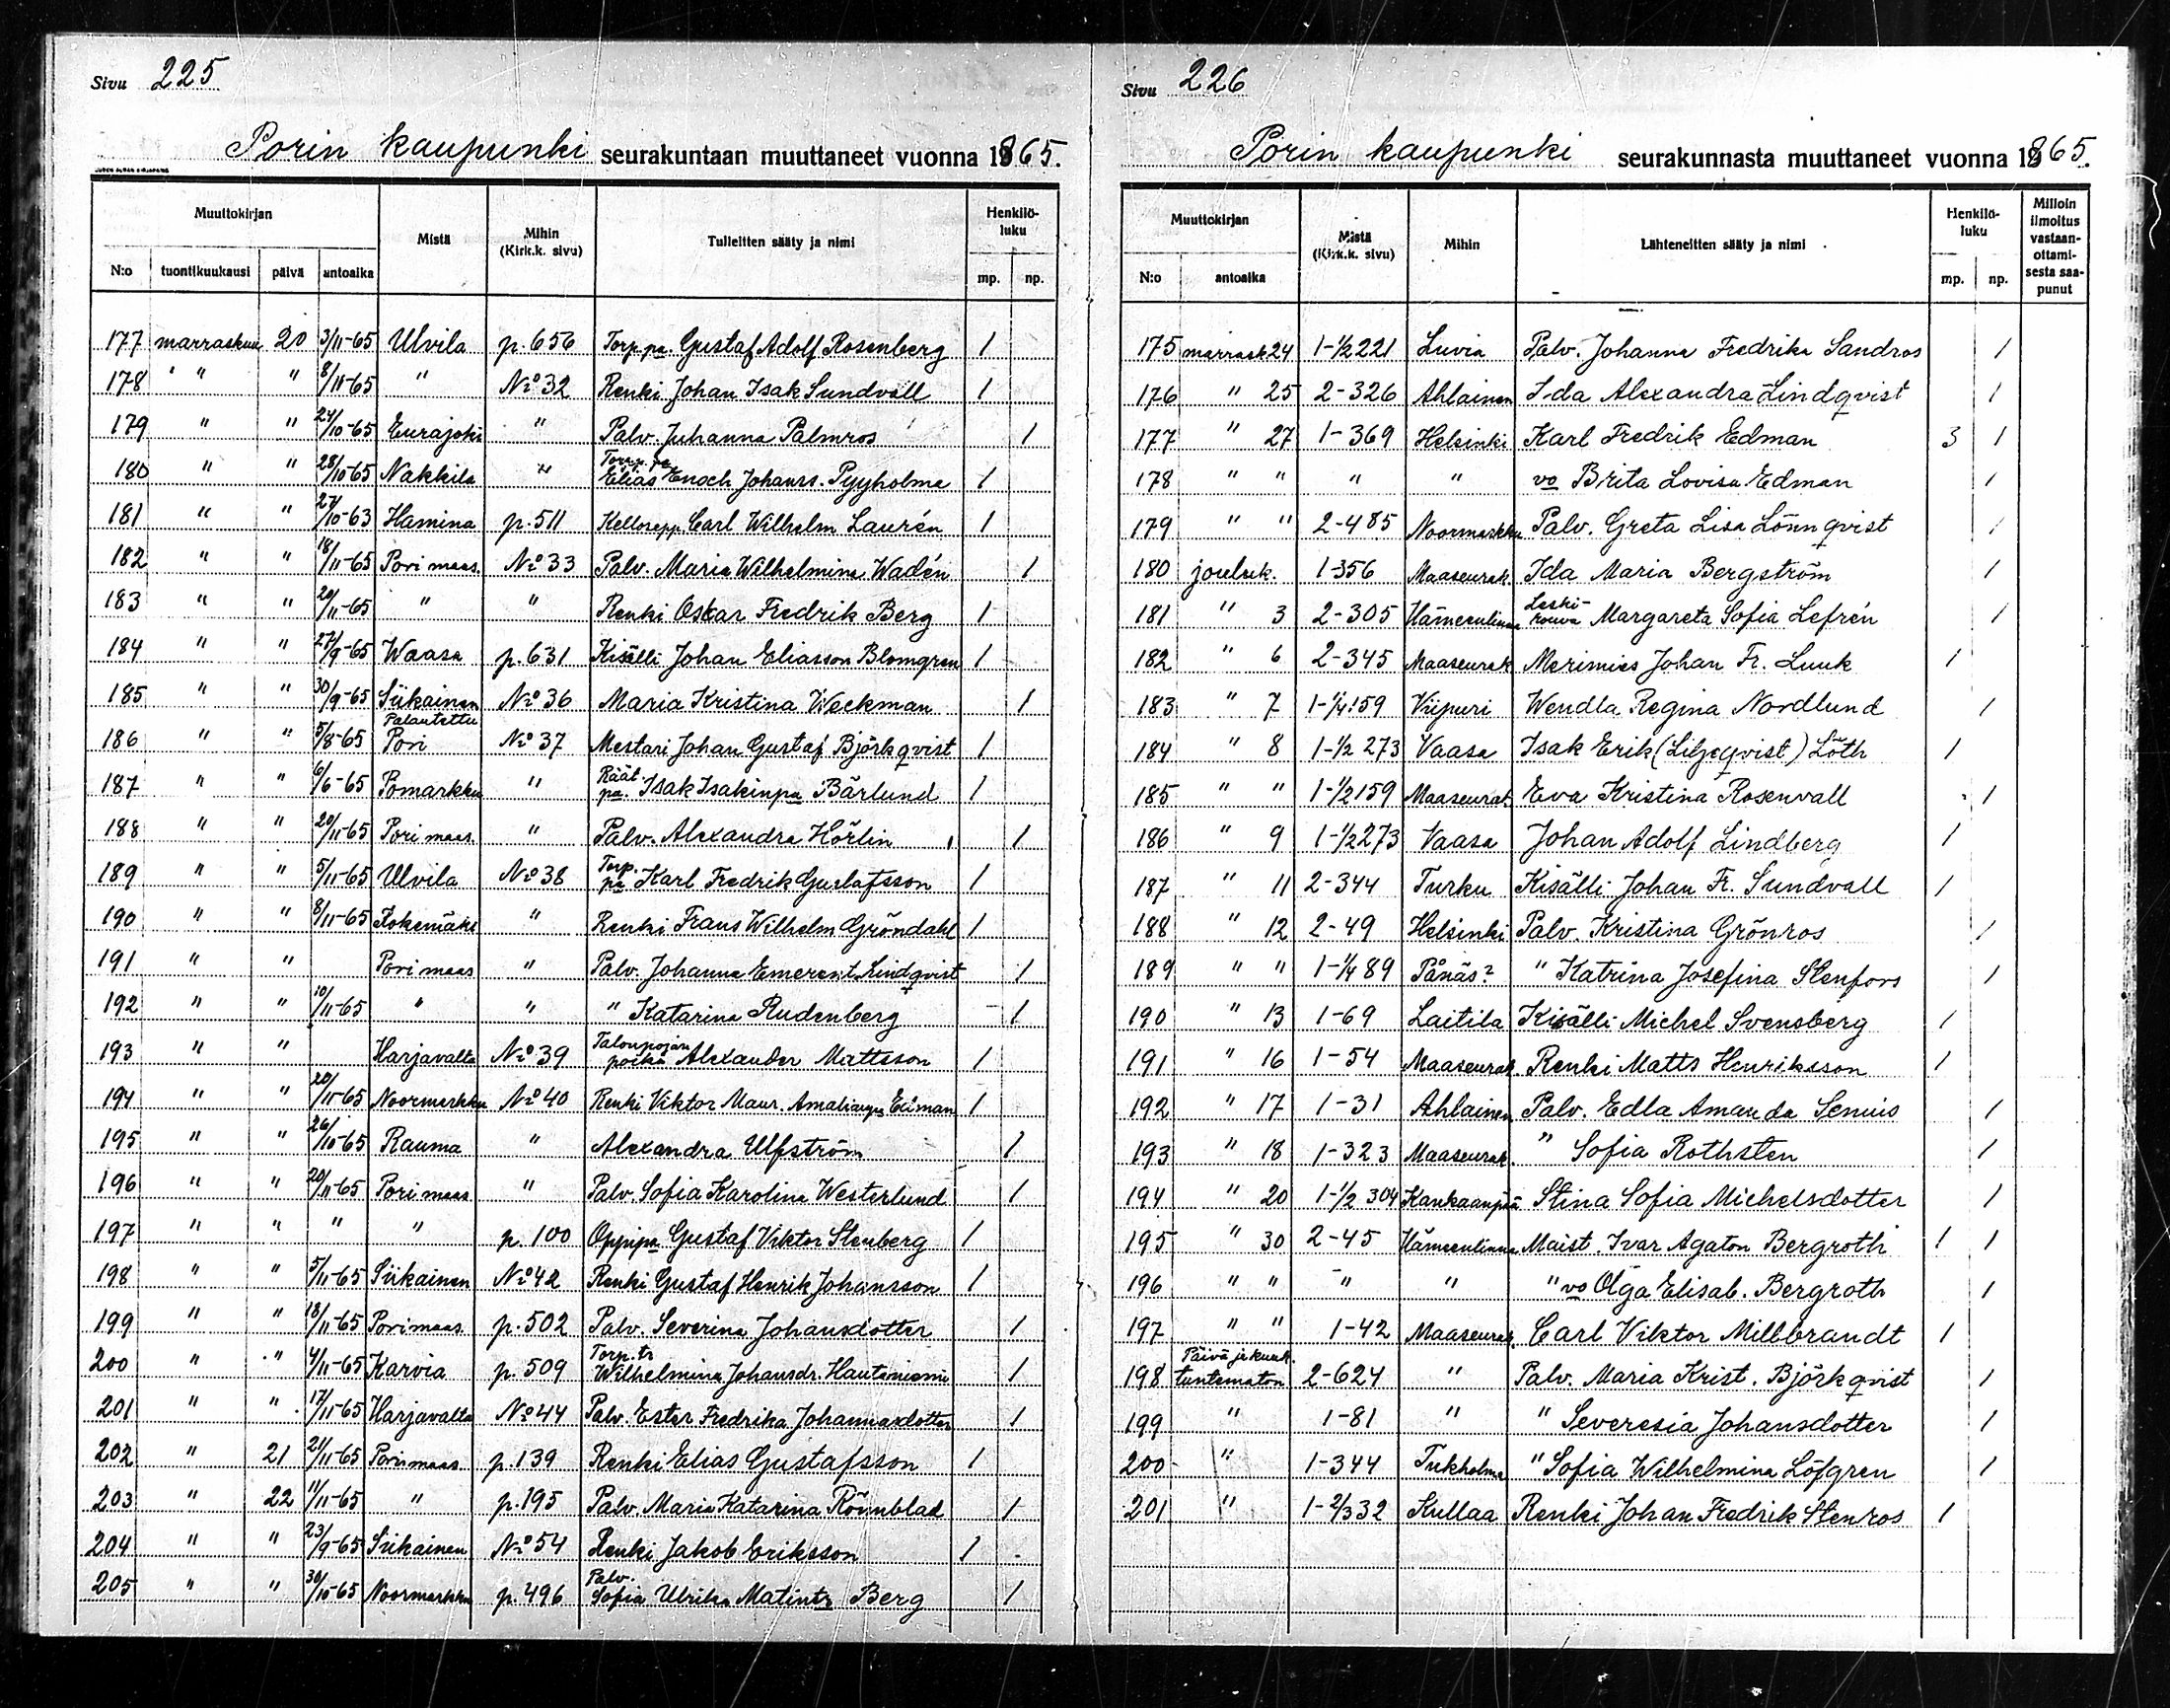 Sivu 225
Porin kaupunki seurakuntaan muuttaneet vuonna 1865.
Muuttokirjan Mistä Mihin (Kirk.k. sivu) Tulleitten sääty ja nimi Henkilö-luku
N:o tuontikuukausi päivä antoaika mp. np.
177 marraskuu 20 3/11-65 Ulvila p. 656 Torp.pa. Gustaf Adolf Rosenberg 1
178 " " 8/11-65 " No 32 Renki Johan Isak Sundvall 1
179 " " 24/10-65 Eurajoki " Palv. Juhanna Palmros 1
180 " " 28/10-65 Nakkila " Torp.pa Elias Enoch Johanss. Pyyholma 1
181 " " 27/10-63 Hamina p. 511 Kellosepp Carl Wilhelm Laurén 1
182 " " 18/11-65 Pori maas. No 33 Palv. Maria Wilhelmina Wadén 1
183 " " 20/11-65 " " Renki Oskar Fredrik Berg 1
184 " " 27/9-65 Waasa p. 631 Kisälli Johan Eliasson Blomgren 1
185 " " 30/9-65 Siikainen No 36 Maria Kristina Weckman 1
186 " " 5/8-65 Palautettu Pori No 37 Mestari Johan Gustaf Björkqvist 1
187 " " 6/6-65 Pomarkku " Räät. pa. Isak Isakinpa Bärlund 1
188 " " 20/11-65 Pori maas. " Palv. Alexandra Hörlin 1
189 " " 5/11-65 Ulvila No 38 Torp. pa Karl Fredrik Gustafsson 1
190 " " 8/11-65 Kokemäki " Renki Frans Wilhelm Gröndahl 1
191 " " Pori maas " Palv. Johanna Emerent. Lindqvist 1
192 " " 10/11-65 " " " Katarina Rudenberg 1
193 " " Harjavalta No 39 Talonpojan poika Alexander Mattsson 1
194 " " 20/11-65 Noormarkku No 40 Renki Viktor Maur. Edman 1
195 " " 26/10-65 Rauma " Alexandra Ulfström 1
196 " " 20/11-65 Pori maas " Palv. Sofia Karolina Westerlund 1
197 " " " " p. 100 Oppipa Gustaf Viktor Stenberg 1
198 " " 5/11-65 Siikainen No 42 Renki Gustaf Henrik Johansson 1
199 " " 18/11-65 Pori maas. p. 502 Palv. Severina Johansdotter 1
200 " " 4/11-65 Karvia p. 509 Torp.tr Wilhelmina Johansdr. Hautaniemi 1
201 " " 17/11-65 Harjavalta No 44 Palv. Ester Fredrika Johannasdotter 1
202 " 21 21/11-65 Pori maas p. 139 Renki Elias Gustafsson 1
203 " 22 11/11-65 " p. 195 Palv. Maria Katarina Rönnblad 1
204 " " 23/9-65 Siikainen No 54 Renki Jakob Eriksson 1
205 " " 30/10-65 Noormarkku p. 496 Palv. Sofia Ulrika Matintr Berg 1
Sivu 226
Porin kaupunki seurakunnasta muuttaneet vuonna 1865.
Muuttokirjan Mistä (Kirk.k. sivu) Mihin Lähteneitten sääty ja nimi Henkilö-luku Milloin ilmoitus vastaan-ottami-sesta saa-punut
N:o antoaika mp. np.
175 marrask 24 1-1/2 221 Luvia Palv. Johanna Fredrika Sandros 1
176 " 25 2-326 Ahlainen Ida Alexandra Lindqvist 1
177 " 27 1-369 Helsinki Karl Fredrik Edman 3 1
178 " " " " vo Brita Lovisa Edman 1
179 " " 2-485 Noormarkku Palv. Greta Lisa Lönnqvist 1
180 jouluk. 1-356 Maaseurak. Ida Maria Bergström 1
181 " 3 2-305 Hämeenlinna Leski-rouva Margareta Sofia Lefrén 1
182 " 6 2-345 Maaseurak Merimies Johan Fr. Luuk 1
183 " 7 1-1/4 159 Viipuri Wendla Regina Nordlund 1
184 " 8 1-1/2 273 Vaasa Isak Erik (Liljeqvist) Löth 1
185 " " 1-1/2 159 Maaseurak. Eva Kristina Rosenvall 1
186 " 9 1-1/2 273 Vaasa Johan Adolf Lindberg 1
187 " 11 2-344 Turku Kisälli Johan Fr. Sundvall 1
188 " 12 2-49 Helsinki Palv. Kristina Grönros 1
189 " " 1-1/4 89 Pånäs? " Katrina Josefina Stenfors 1
190 " 13 1-69 Laitila Kisälli Michel Svensberg 1
191 " 16 1-54 Maaseurak. Renki Matts Henriksson 1
192 " 17 1-31 Ahlainen Palv. Edla Amanda Senius 1
193 " 18 1-323 Maaseurak. " Sofia Rothsten 1
194 " 20 1-1/2 304 Kankaanpää Stina Sofia Michelsdotter 1
195 " 30 2-45 Hämeenlinna Maist. Ivar Agaton Bergroth 1 1
196 " " " " " vo Olga Elisab. Bergroth 1
197 " " 1-42 Maaseurak. Carl Viktor Millbrandt 1
198 Päivä ja kuuk. tuntematon 2-624 " Palv. Maria Krist. Björkqvist 1
199 " 1-81 " " Severesia Johansdotter 1
200 " 1-344 Tukholma " Sofia Wilhelmina Löfgren 1
201 " 1-2/3 32 Kullaa Renki Johan Fredrik Stenros 1